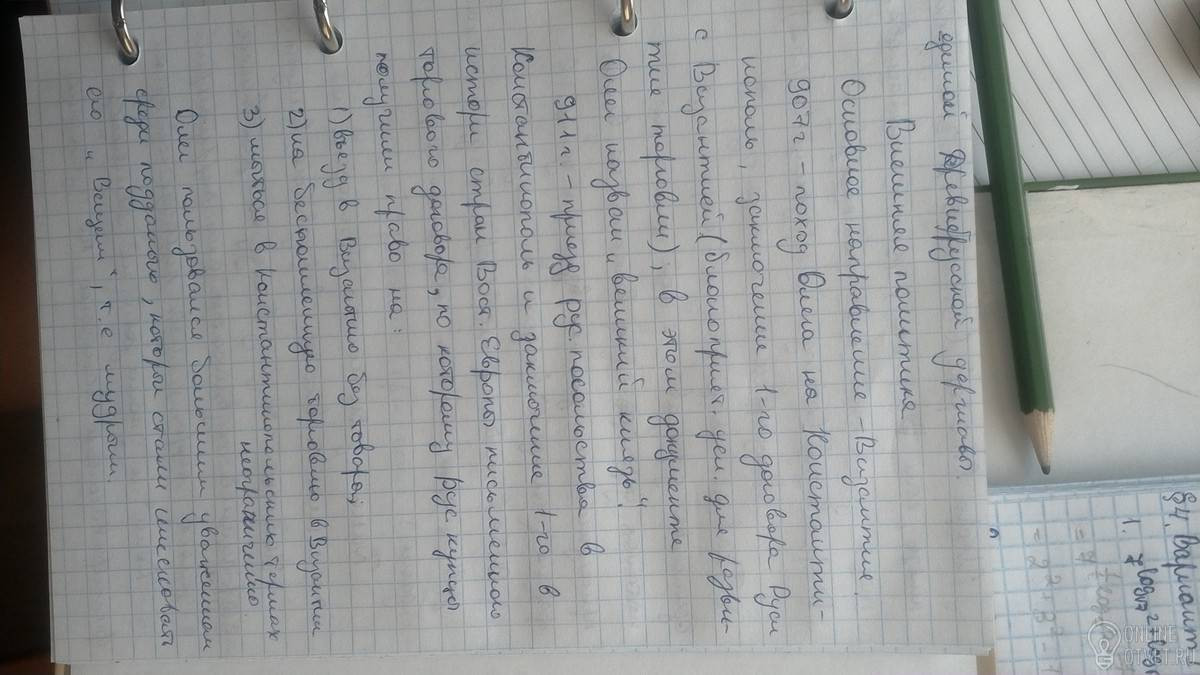 единой Древнерусской державы.
Внешняя политика
Основное направление - Византия.
907 г - поход Олега на Константи-
нополь, заключение 1-го договора Руси
с Византией (благоприят. усл. для разви-
тия торговли), в этом документе
Олег назван „великий князь“.
911 г. - приезд рус. посольства в
Константинополь и заключение 1-го в
истори стран Вост. Европы письменного
торгового договора, по которому рус купцы
получили право на:
1) въезд в Византию без товара;
2) на беспошлинную торговлю в Византии
3) мыться в Константинопольских термах
неограниченно.
Олег пользовался большим уважением
среди подданого, которы стали именовать
его „Вещем“, т.е мудрым.
§4. Вариант
1.
ONLINE
OTVET.RU